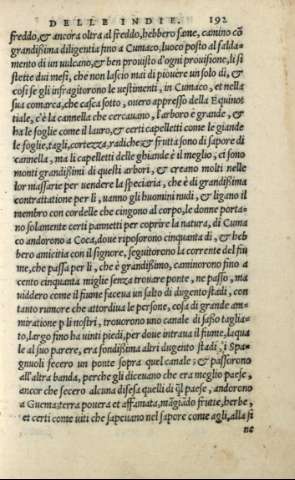 DELLE INDIE. 192
freddo,& ancora oltra al freddo,hebbero fame, camino cõ
grandißima diligentia fino a Cumaco,luoco posto al falda-
mento di un vulcano,& ben prouisto d'ogni prouisione, li si
stette dui mesi, che non lascio mai di piouere un solo dì, &
cosi se gli infragitorono le uestimenti, in Cumaco, et nella
sua comarca,che casca sotto, ouero appresso della Equinot
tiale, c'è la cannella che cercauano, l'arboro è grande, &
ha le foglie come il lauro,& certi capelletti come le giande
le foglie,tagli,cortezza,radiche& frutta sono di sapore di
cannella, ma li capelletti delle ghiande è il meglio, ci sono
monti grandißimi di questi arbori, & creano molti nelle
lor massarie per uendere la speciaria, che è di grandißima
contrattatione per lì, uanno gli huomini nudi, & ligano il
membro con cordelle che cingono al corpo,le donne porta-
no solamente certi pannetti per coprire la natura, di Cuma
co andorono a Coca,doue riposorono cinquanta dì, & heb
bero amicitia con il signore, seguitorono la corrente del fiu
me,che passa per lì, che è grandißimo, caminorono fino a
cento cinquanta miglie senza trouare ponte, ne passo, ma
uiddero come il fiume faceua un salto di dugento stadi, con
tanto rumore che attordiua le persone, cosa di grande am-
miratione p li nostri, trouorono uno canale di sasso taglia-
to,largo fino ha uinti piedi,per doue intraua il fiume,laqua
le al suo parere, era fondißima altri dugento stadi, i Spa-
gnuoli fecero un ponte sopra quel canale: & passorono
all'altra banda, perche gli diceuano che era meglio paese,
ancor che fecero alcuna difesa quelli di q̃l paese, andorono
a Guema:terra pouera et affamata, mãgiãdo frutte, herbe,
et certi come uiti che sapeuano nel sapore come agli,alla fi
ne